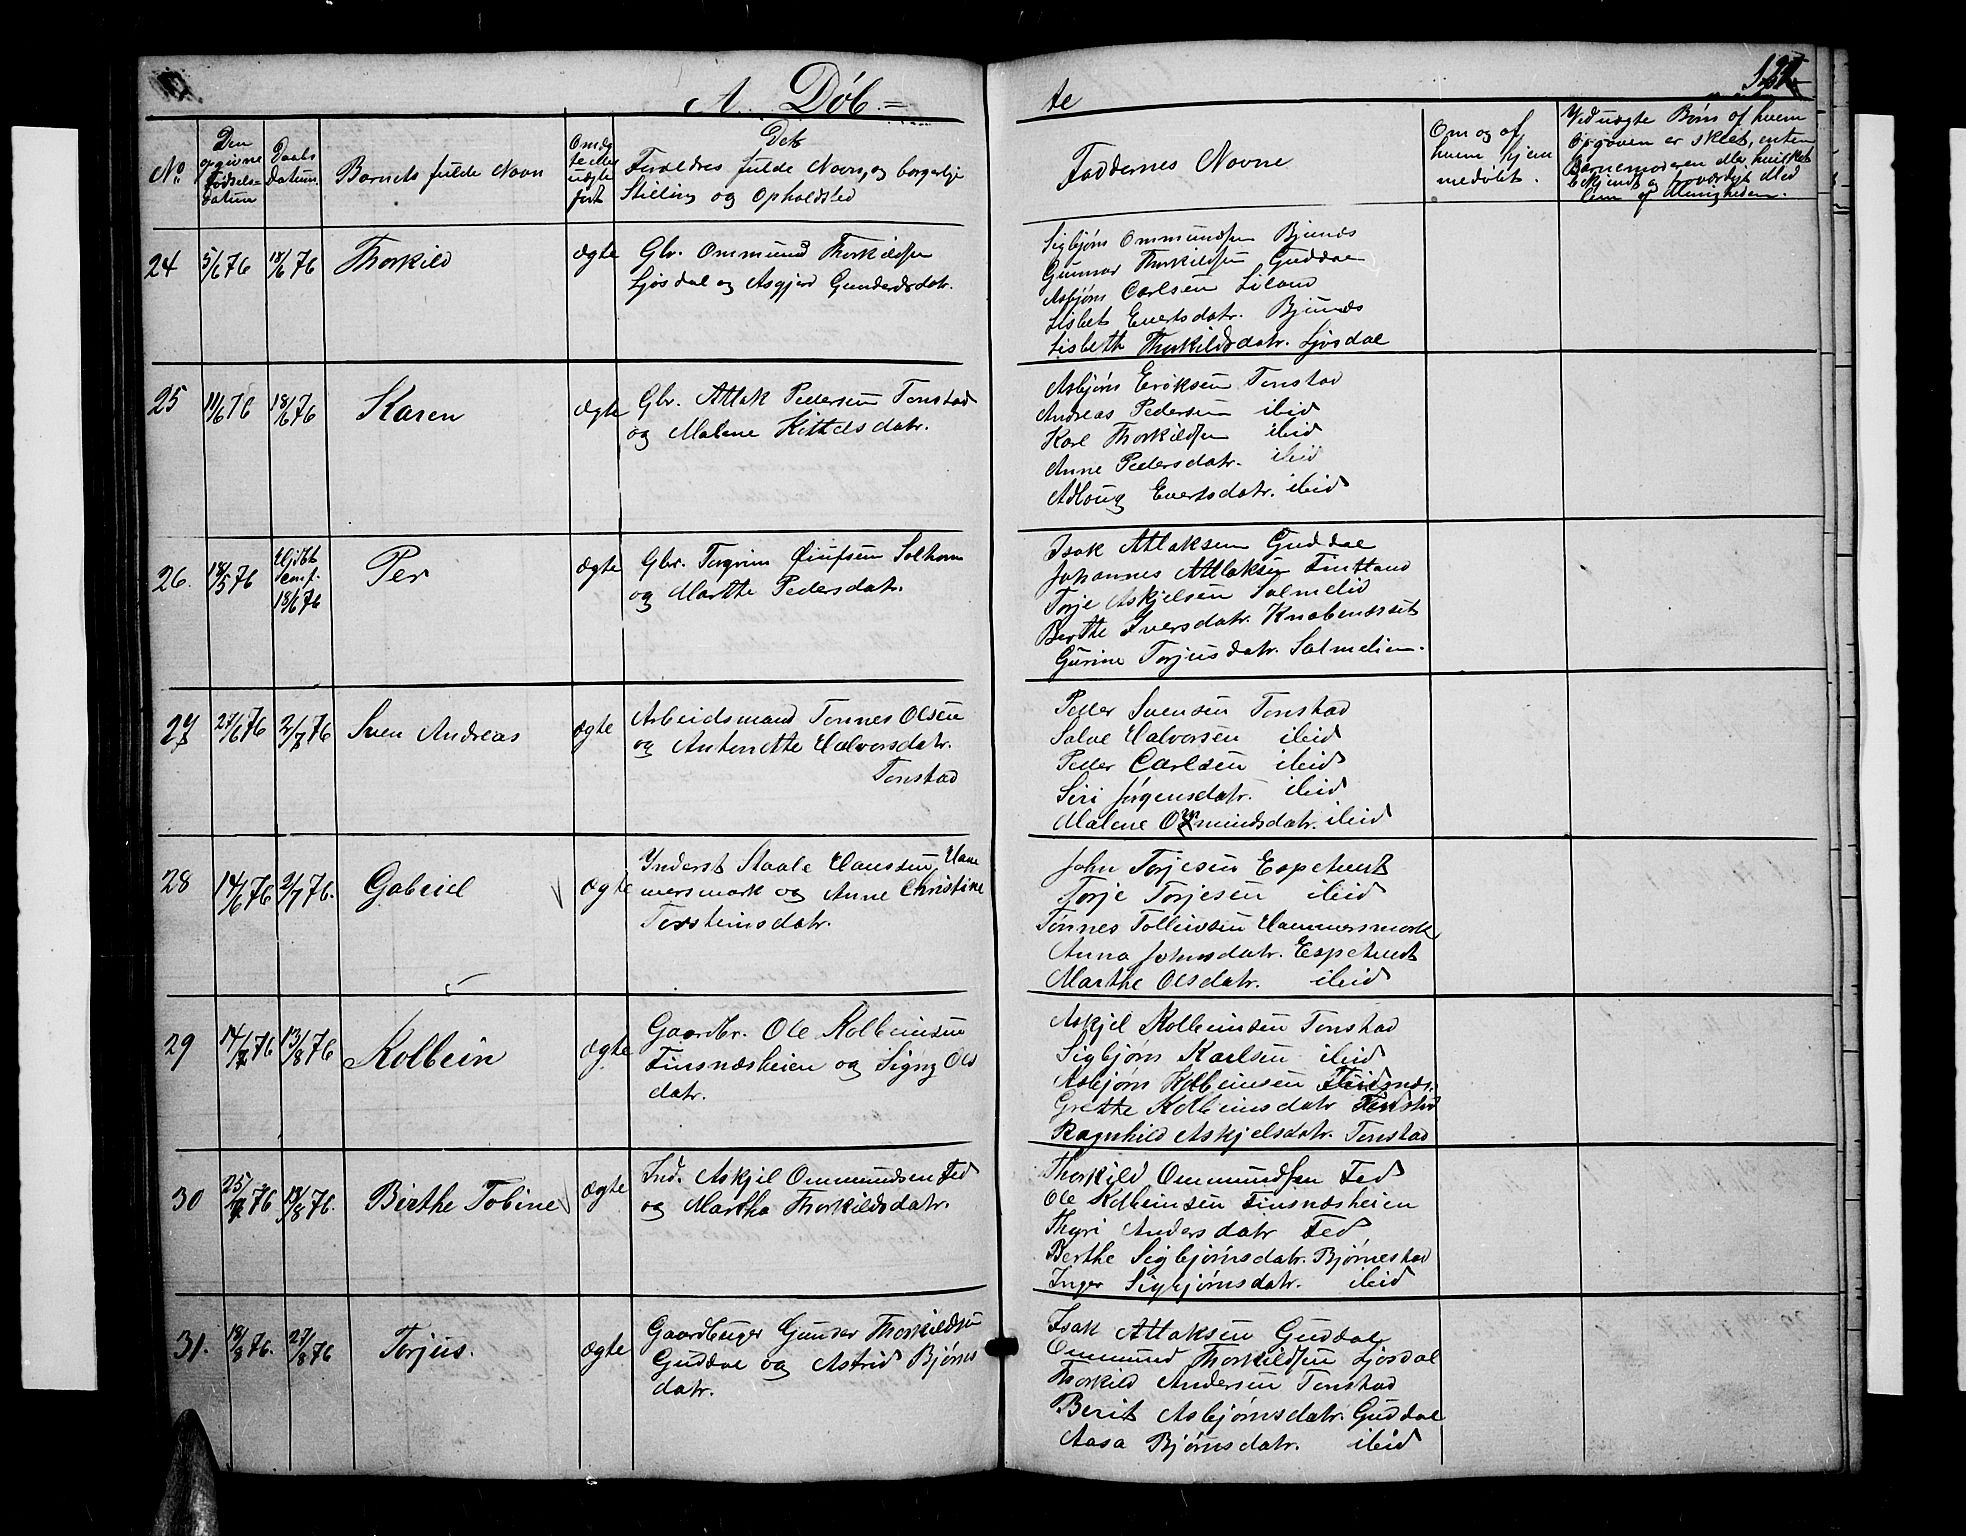 A. Døb=
te
No.
Den opgivne Fødsels-datum
Daabs Datum
Barnets fulde Navn
Om ægte eller uægte født
Dets Forældres fulde Navn og borgerlige Stilling og Opholdsted
Faddernes Navne
Om og af hvem hjemmedøbt.
Ved uægte Børn af hvem Opgaven er skeet, enten Barnemoderen eller hvilket bekjendt og troværdigt Medlem af Menigheden.
24 5/6 76 18/6 76 Thorkild ægte Gbr. Ommund Thorkildsen
Ljosdal og Asgjerd Gundersdatr.
Sigbjørn Ommundsen Bjunes
Gunnar Thorkildsen Guddal
Asbjørn Carlsen Liland
Lisbet Evertsdatr. Bjunes
Lisbeth Thorkildsdatr. Ljosdal
25 11/6 76 18/6 76 Karen ægte Gbr. Atlak Pedersen Tonstad
og Malene Kittelsdatr.
Asbjørn Eriksen Tonstad
Andreas Pedersen ibid
Karl Thorkildsen ibid
Anne Pedersdatr. ibid
Adloug Evertsdatr. ibid
26. 18/5 76 Hjdbt
18/6 76 Per ægte Gbr. Tergrim Solhom
og Marthe Pedersdatr.
Isak Atlaksen Guddal
Johannes Atlaksen Fintland
Torje Askjelsen Salmelid
Berthe Iversdatr. Knabenæset
Gurine Torjusdatr. Salmelien.
27 27/6 76 2/7 76 Sven Andreas ægte Arbeidsmand Tønnes Olsen
og Antonette Halvorsdatr.
Tonstad
Peder Svensen Tonstad
Salve Halvorsen ibid
Peder Carlsen ibid
Siri Jørgensdatr. ibid
Malene Ommundsdatr. ibid
28 14/6 76 2/7 76. Gabriel ægte Inderst Staale Hanssen Ham
mersmark og Anne Christine
Torsteinsdatr.
John Torjesen Espetvedt
Torje Torjesen ibid
Tønnes Tolleivsen Hammersmark
Anna Johnsdatr. Espetvedt
Marthe Olsdatr. ibid
29 14/7 76 13/8 76 Kolbein ægte Gaardbr. Ole Kolbeinsen
Finsnæsheien og Signy Ols
datr.
Askjel Kolbeinsen Tonstad
Sigbjørn Karlsen ibid
Asbjørn Kolbeinsen
Grethe Kolbeinsdatr Tonstad
Ragnhild Askjelsdatr. Tonstad
30 25/7 76 13/8 76. Birthe Tobine ægte Ind. Askjel Ommundsen Fed
og Martha Thorkildsdatr.
Thorkild Ommundsen Fed
Ole Kolbeinsen Finsnæsheien
Thyri Andersdatr Fed
Berthe Sigbjørnsdatr. Bjørnestad
Inger Sigbjørnsdatr. ibid
31. 18/8 76. 27/8 76 Torjus. ægte Gaardbruger Gunder Thorkildsen
Guddal og Astrid Bjørns
datr.
Isak Atlaksen Guddal
Ommund Thorkildsen Ljosdal
Thorkild Andersen Tonstad
Berit Asbjørnsdatr. Guddal
Aasa Bjørnsdatr. ibid